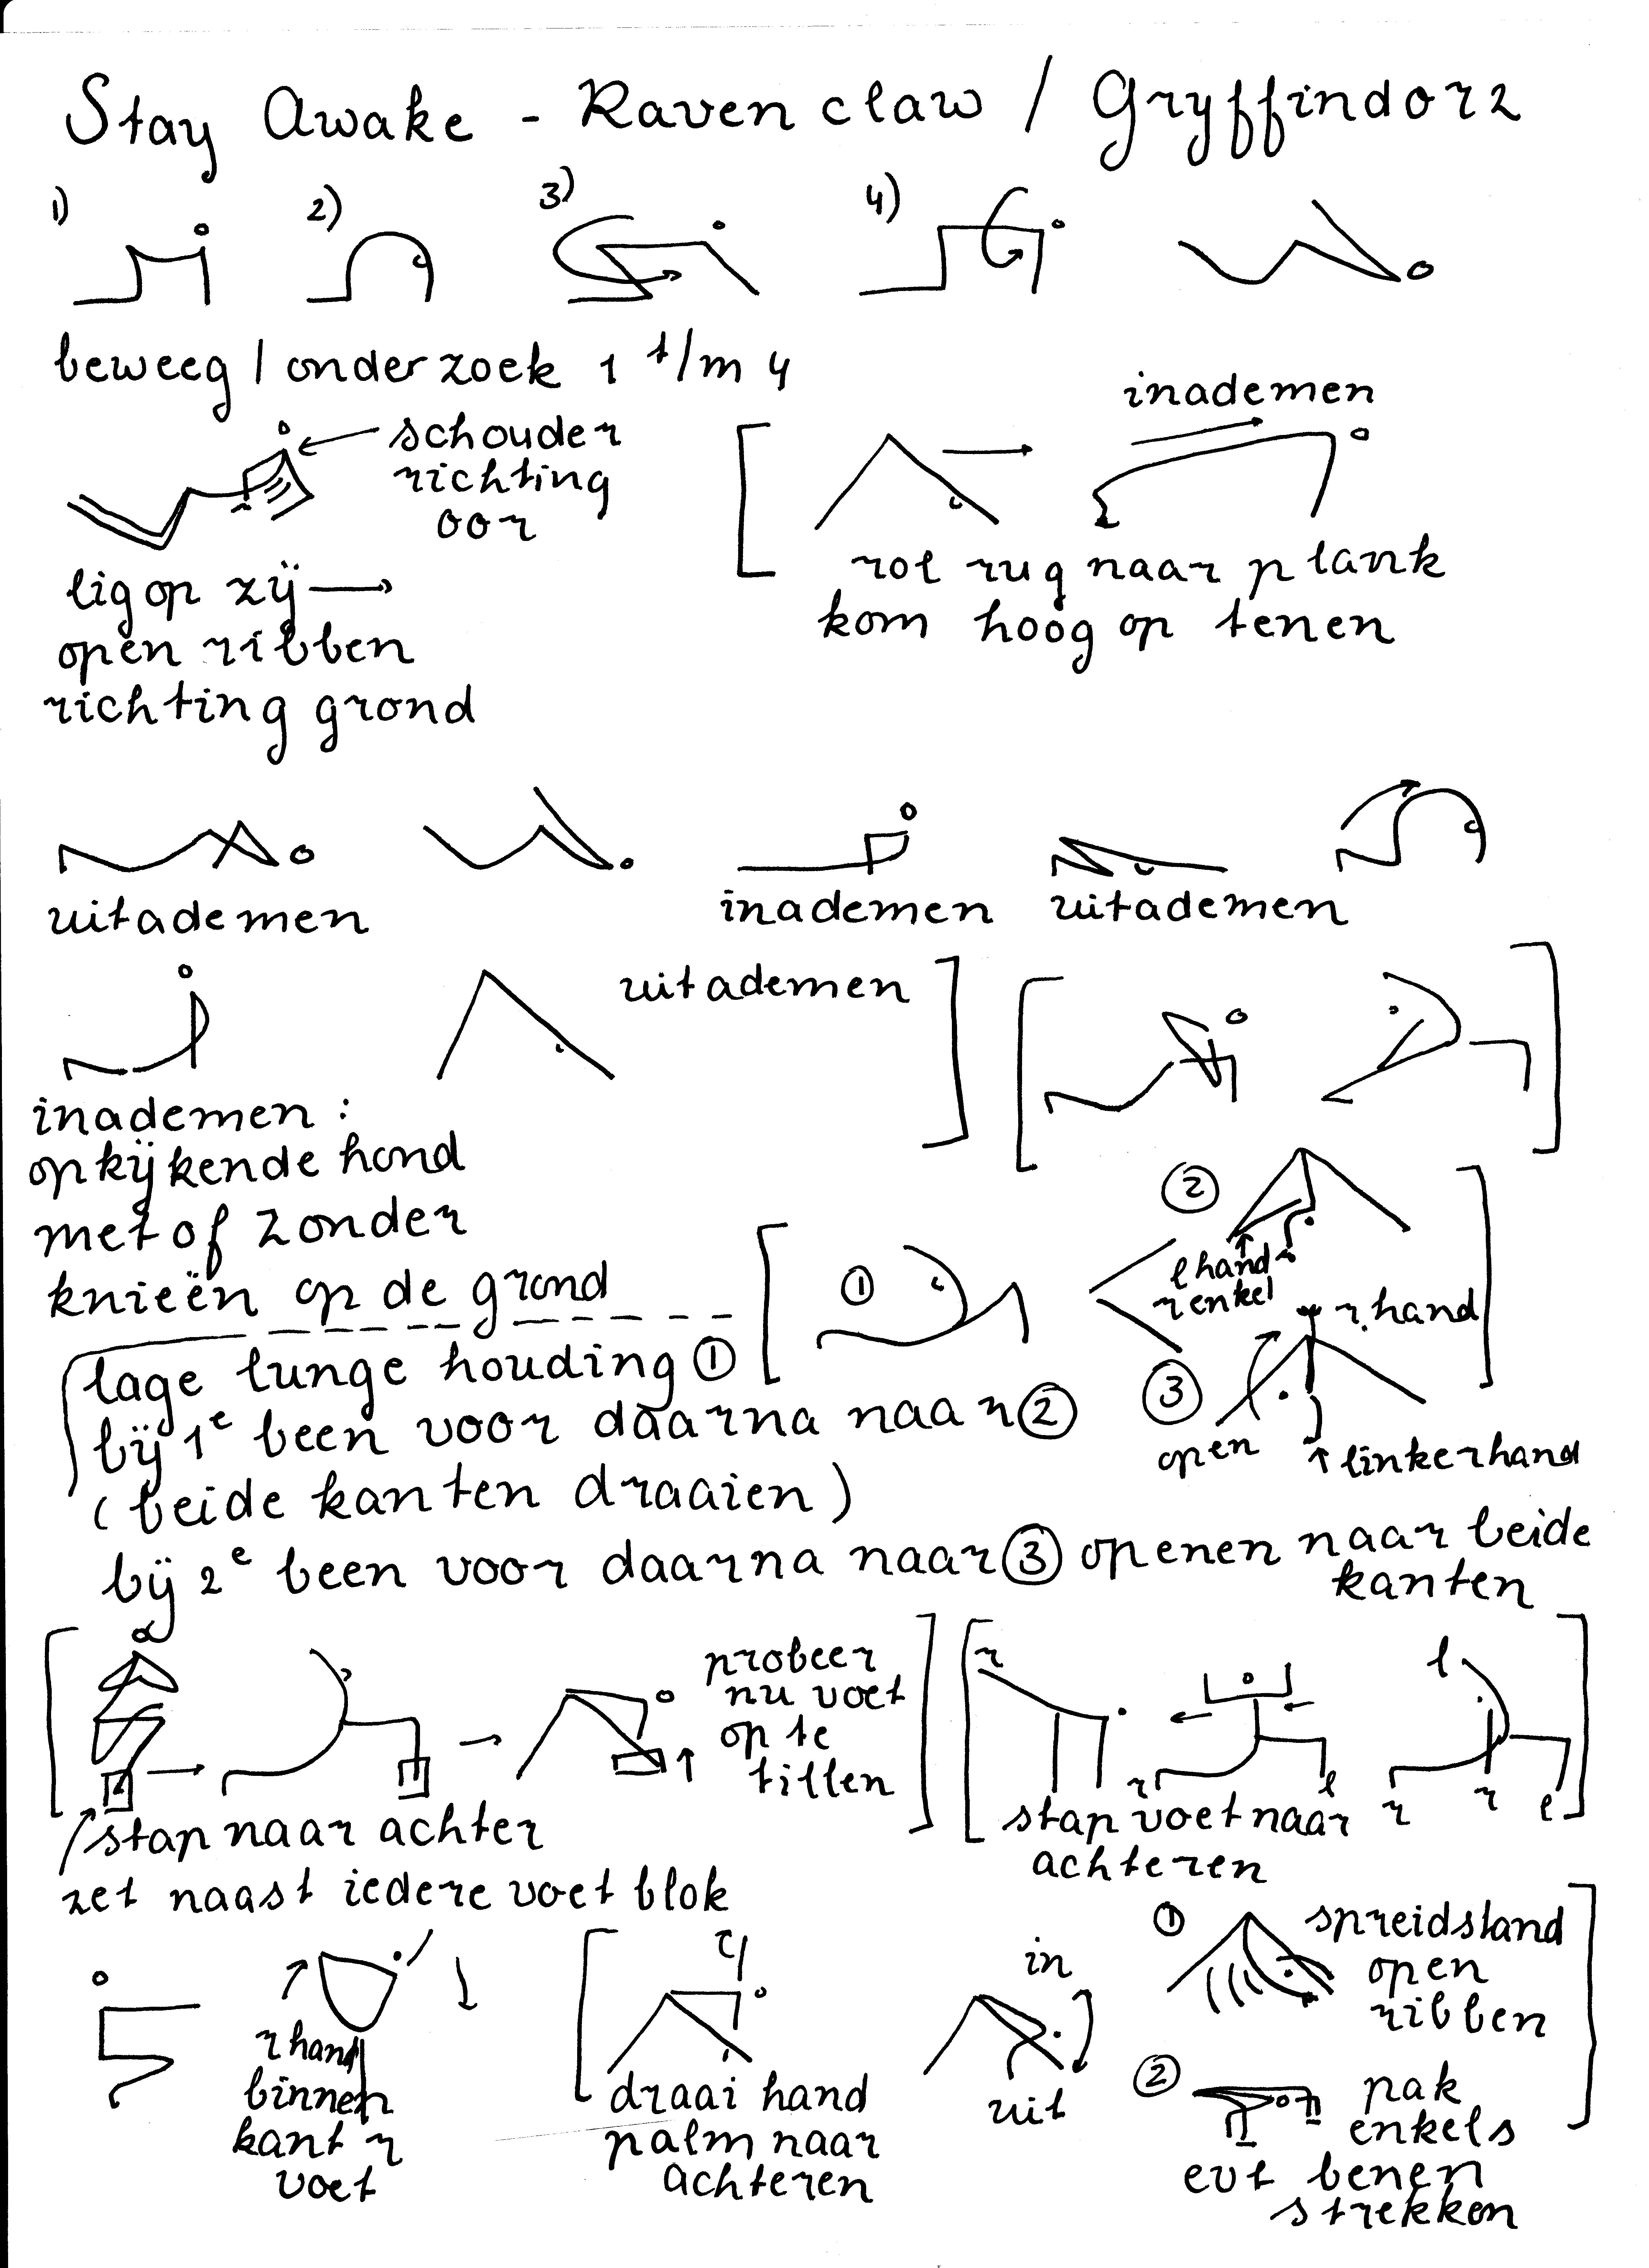 Stay Awake - Ravenclaw / Gryffindor 2
1) 2) 3) 4)
beweeg / onderzoek 1 t/m 4
schouder
richting
oor
lig op zij →
open ribben
richting grond
inademen
rol rug naar plank
kom hoog op tenen
uitademen
inademen
uitademen
inademen:
opkijkende hond
met of zonder
knieën op de grond
uitademen
①
②
l hand
r enkel
r. hand
③
open
↑ linkerhand
lage lunge houding ①
bij 1e been voor daarna naar ②
(beide kanten draaien)
bij 2e been voor daarna naar ③ openen naar beide
kanten
probeer
nu voet
op te
tillen
stap naar achter
zet naast iedere voet blok
r
r l
l
r r l
stap voet naar
achteren
r hand
binnen
kant r
voet
draai hand
palm naar
achteren
in
uit
① spreidstand
open
ribben
② pak
enkels
evt benen
strekken